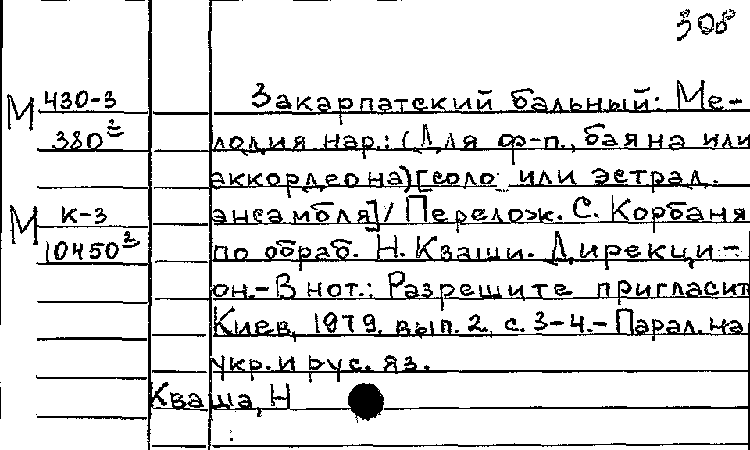 308
М 430-3 Закарпатский бальный: Ме-
380³ лодия нар.: (Для ф-п., баяна или
аккордеона) [соло или эстрад.
М К-3 ансамбля] / Перелож. С. Корбаня
10450³ по обраб. Н. Кваши. Дирекци-
он.- В нот.: Разрешите пригласит
Киев, 1979. вып. 2. с. 3-4.- Парал. на
укр. и рус. яз.
Кваша, Н